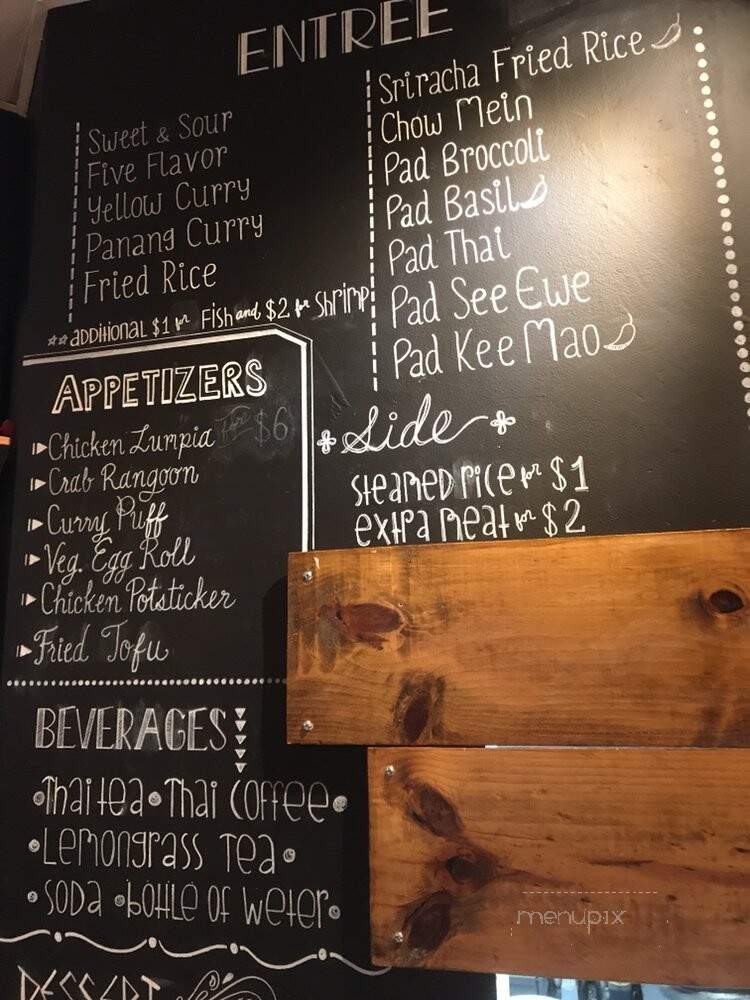 ENTREE
Sweet & Sour
Five Flavor
Yellow Curry
Panang Curry
Fried Rice
Sriracha Fried Rice
Chow Mein
Pad Broccoli
Pad Basil
Pad Thai
Pad See Ewe
Pad Kee Mao
**additional $1 for Fish and $2 for shrimp
APPETIZERS
for $6
Chicken Lumpia
Crab Rangoon
Curry Puff
Veg. Egg Roll
Chicken Potsticker
Fried Tofu
Side
steamed rice for $1
extra meat for $2
BEVERAGES
Thai tea • Thai Coffee
Lemongrass Tea
Soda • bottle of weter
DESSERT
menupix